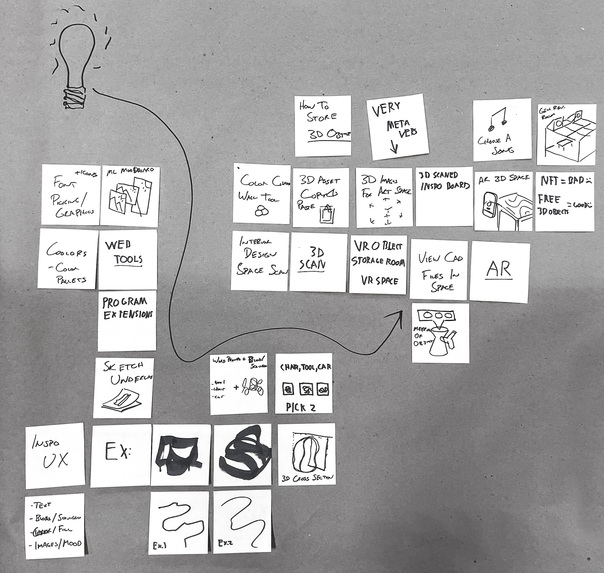 How To
Store
3D Object
VERY
META
VERS
CHOOSE A
SONG
+ICONS
FONT
PICKING/
GRAPHICS
ML MOODBOARD
WALL TOOL
3D ASSET
COPY AND
PASTE
3D IMAGES
FOR ART SPACE
3D SCANED
INSPO BOARD
AR 3D SPACE
NFT = BAD
FREE
3D OBJECTS = GOOD
COOLORS
- COLOR
PALLETS
WEB
TOOLS
INTERIOR
DESIGN
SPACE SCAN
3D
SCAN
VR OBJECT
STORAGE ROOM
VR SPACE
VIEW CAD
FILES IN
SPACE
AR
PROGRAM
EXTENSIONS
SKETCH
UNDERLAY
CHAIR, TOOL, CAR
PICK 2
INSPO
UX
EX:
3D CROSS SECTION
- TEXT
- IMAGES/MOOD
EX.1
EX.2